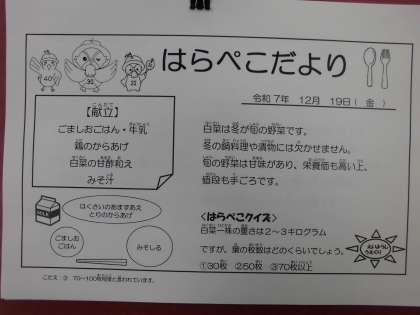 はらぺこだより
令和7年 12月 19日(金)
【献立】
ごましおごはん・牛乳
鶏のからあげ
白菜の甘酢和え
みそ汁
はくさいのあまずあえ
とりのからあげ
ごましお
ごはん
みそしる
白菜は冬が旬の野菜です。
冬の鍋料理や漬物には欠かせません。
旬の野菜は甘味があり、栄養価も高い上、
値段も手ごろです。
<はらぺこクイズ>
白菜一株の重さは2~3キログラム
ですが、葉の枚数はどのくらいでしょう。
①30枚 ②50枚 ③70枚以上
こたえ:③ 70~100枚程度と言われています。